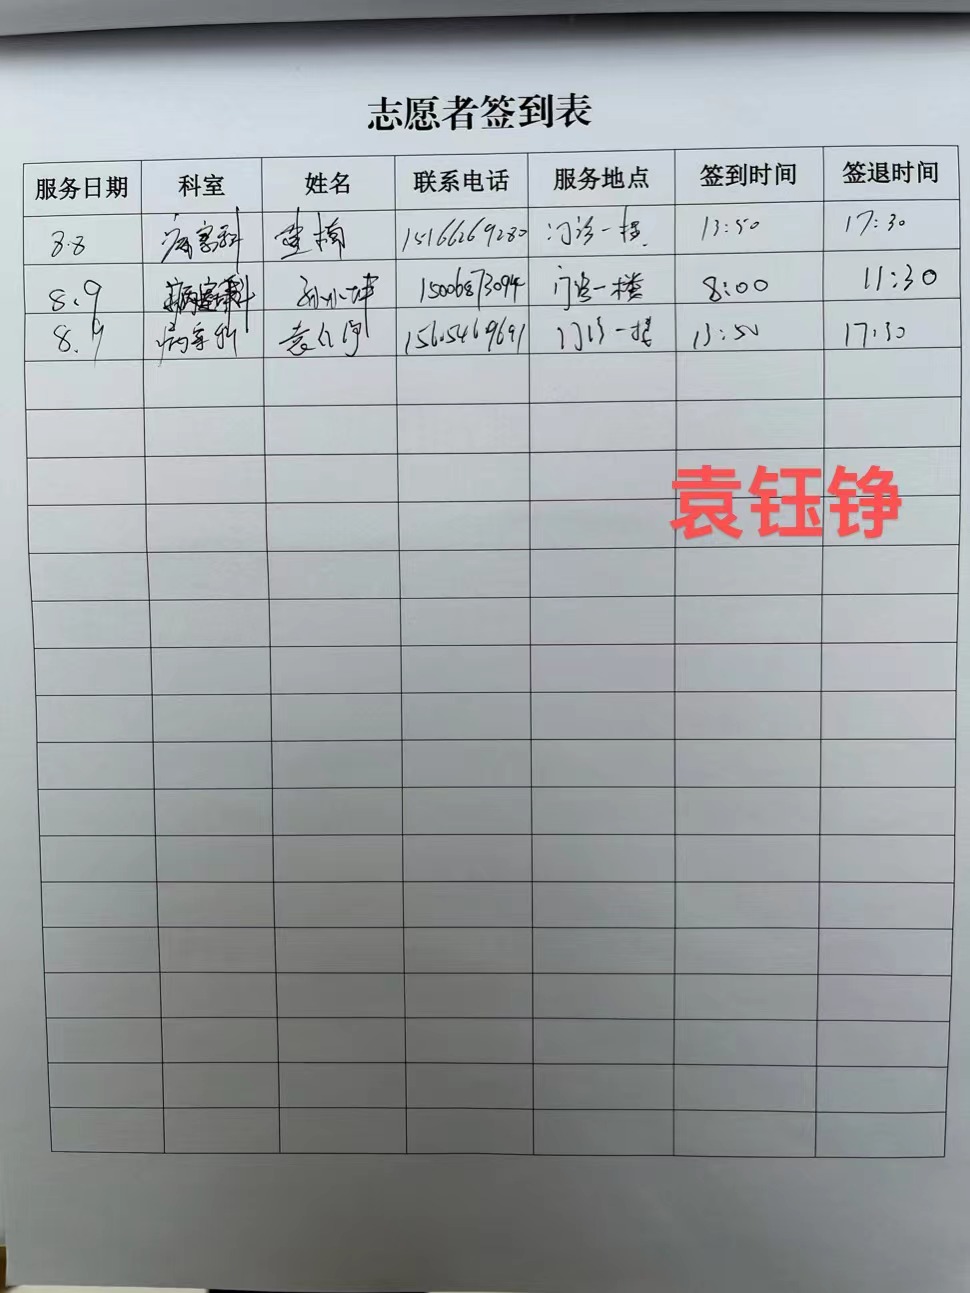 志愿者签到表
服务日期 科室 姓名 联系电话 服务地点 签到时间 签退时间
8.8 病案科 15166269280 门诊一楼 13:50 17:30
8.9 病案科 15006873094 门诊一楼 8:00 11:30
8.9 病案科 门诊一楼 13:50 17:30
袁钰铮